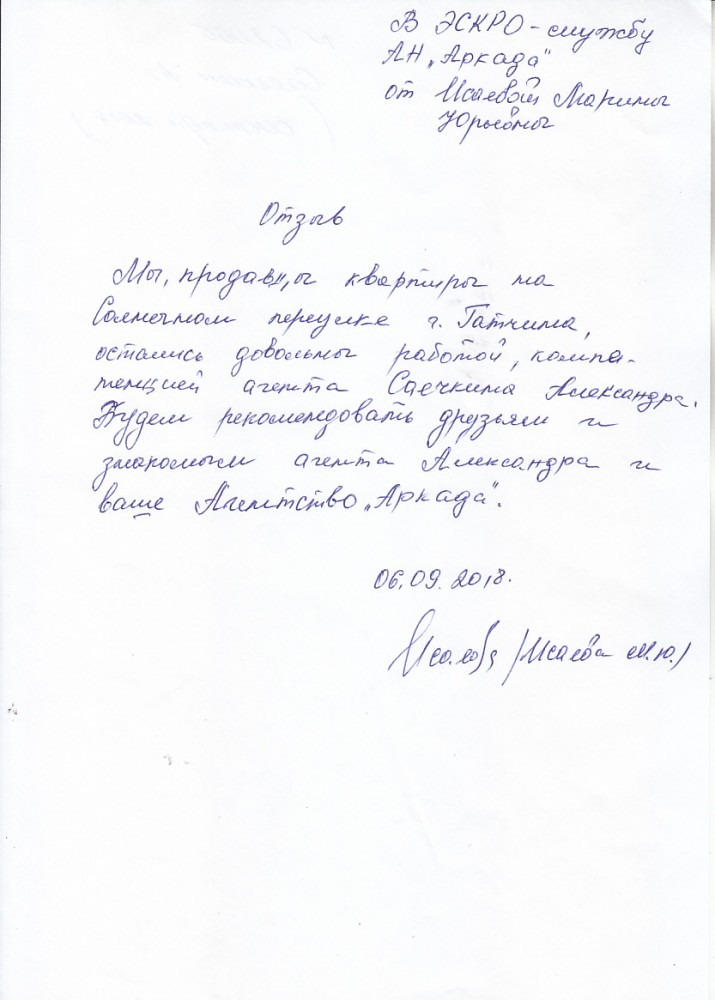 В ЭСКРО-службу
АН „Аркада"
от Исаевой Марины
Юрьевны
Отзыв
Мы, продавцы квартиры на
Солнечном переулке г. Гатчина,
остались довольны работой, компа-
тенцией агента Саечкина Александра.
Будем рекомендовать друзьям и
знакомым агента Александра и
ваше Агентство „Аркада".
06.09.2018.
(Исаева М.Ю.)